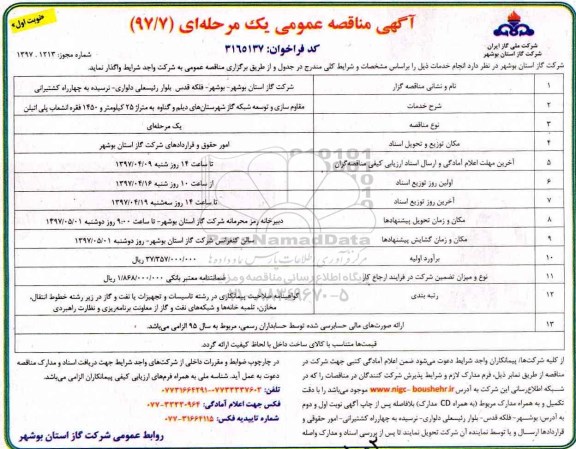 «نوبت اول»
آگهی مناقصه عمومی یک مرحله‌ای (۹۷/۷)
شرکت ملی گاز ایران
شرکت گاز استان بوشهر
کد فراخوان: ۳۱۶۵۱۳۷
شماره مجوز: ۱۳۹۷.۱۲۱۳
شرکت گاز استان بوشهر در نظر دارد انجام خدمات ذیل را براساس مشخصات و شرایط کلی مندرج در جدول و از طریق برگزاری مناقصه عمومی به شرکت واجد شرایط واگذار نماید.
۱ نام و نشانی مناقصه گزار شرکت گاز استان بوشهر- بوشهر- فلکه قدس بلوار رئیسعلی دلواری- نرسیده به چهارراه کشتیرانی
۲ شرح خدمات مقاوم سازی و توسعه شبکه گاز شهرستان‌های دیلم و گناوه به متراژ ۲۵ کیلومتر و ۱۴۵۰ فقره انشعاب پلی اتیلن
۳ نوع مناقصه یک مرحله‌ای
۴ مکان توزیع و تحویل اسناد امور حقوق و قراردادهای شرکت گاز استان بوشهر
۵ آخرین مهلت اعلام آمادگی و ارسال اسناد ارزیابی کیفی مناقصه‌گران تا ساعت ۱۴ روز شنبه ۱۳۹۷/۰۴/۰۹
۶ اولین روز توزیع اسناد از ساعت ۱۰ روز شنبه ۱۳۹۷/۰۴/۱۶
۷ آخرین روز توزیع اسناد تا ساعت ۱۴ روز سه‌شنبه ۱۳۹۷/۰۴/۱۹
۸ مکان و زمان تحویل پیشنهادها دبیرخانه رمز محرمانه شرکت گاز استان بوشهر- تا ساعت ۹:۰۰ روز دوشنبه ۱۳۹۷/۰۵/۰۱
۹ مکان و زمان گشایش پیشنهادها سالن کنفرانس شرکت گاز استان بوشهر- روز دوشنبه ۱۳۹۷/۰۵/۰۱
۱۰ برآورد اولیه ۳۷/۳۵۷/۰۰۰/۰۰۰ ریال
۱۱ نوع و میزان تضمین شرکت در فرایند ارجاع کار ضمانتنامه معتبر بانکی ۱/۸۶۸/۰۰۰/۰۰۰ ریال
۱۲ رتبه بندی گواهینامه صلاحیت پیمانکاری در رشته تاسیسات و تجهیزات یا نفت و گاز در زیر رشته خطوط انتقال، مخازن، تلمبه خانه‌ها و شبکه‌های نفت و گاز از معاونت برنامه‌ریزی و نظارت راهبردی
۱۳ ارائه صورت‌های مالی حسابرسی شده توسط حسابداران رسمی، مربوط به سال ۹۵ الزامی می‌باشد.
قیمت‌ها متناسب با کالای ساخت داخل با لحاظ کیفیت ارائه گردد.
از کلیه شرکت‌ها/ پیمانکاران واجد شرایط دعوت می‌شود ضمن اعلام آمادگی کتبی جهت شرکت در
مناقصه از طریق نمابر ذیل، فرم مدارک لازم و شرایط پذیرش شرکت کنندگان در مناقصات را که در
شبکه اطلاع‌رسانی این شرکت به آدرس www.nigc-boushehr.ir موجود می‌باشد را با دقت
تکمیل و به همراه مدارک مربوط (به همراه CD مدارک) بلافاصله پس از چاپ آگهی نوبت اول و دوم
به آدرس: بوشهر- فلکه قدس- بلوار رئیسعلی دلواری- نرسیده به چهارراه کشتیرانی- امور حقوقی و
قراردادها ارسال و یا توسط نماینده آن شرکت تحویل نمایند تا پس از بررسی اسناد و مدارک واصله
در چارچوب ضوابط و مقررات داخلی از شرکت‌های واجد شرایط جهت دریافت اسناد و مدارک مناقصه
دعوت به عمل آید. شناسه ملی به همراه فرم‌های ارزیابی کیفی پیمانکاران الزامی می‌باشد.
تلفن: ۰۷۷۳۳۳۳۷۶۰۲-۰۷۷۳۱۶۶۴۲۹۱
فکس جهت اعلام آمادگی: ۰۷۷-۳۳۳۲۰۹۶۴
شماره تاییدیه فکس: ۰۷۷-۳۱۶۶۴۱۱۵
روابط عمومی شرکت گاز استان بوشهر
ParsNamadData
۰۲۱-۸۸۳۴۹۶۷۰-۵